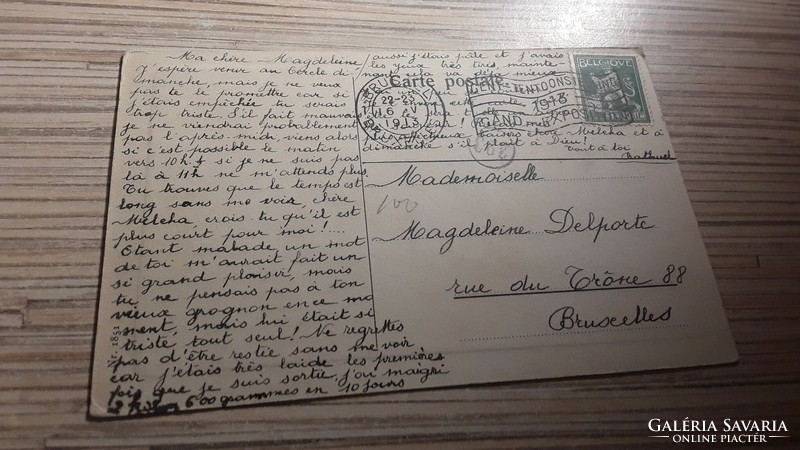 Ma chère Magdeleine
J'espère venir au Cercle di-
manche, mais je ne veux
pas te le promettre car si
j'étais empêchée tu serais
trop triste. S'il fait mauvais
je ne viendrai probablement
pas l'après midi, viens alors
si c'est possible le matin
vers 10h.½ si je ne suis pas
là à 11h ne m'attends plus.
Tu trouves que le temps est
long sans me voir, chère
Melcha crois-tu qu'il est
plus court pour moi!....
Etant malade un mot
de toi m'aurait fait un
si grand plaisir, mais
tu ne pensais pas à ton
vieux grognon en ce mo
ment, mais lui était si
triste tout seul! Ne regrettes
pas d'être restée sans me voir
car j'étais très laide les premières
fois que je suis sortie, j'ai maigri
600 grammes en 10 jours
aussi j'étais pâle et j'avais
les yeux très
cela va mieux
Melcha et à
dimanche s'il plait à Dieu!
tout à toi
Carte postale
BELGIQUE
1913
GENT TENTOONST
1913
GAND EXPOS
100
Mademoiselle
Magdeleine Delporte
rue du Trône 88
Bruxelles
GALÉRIA SAVARIA
ONLINE PIACTÉR